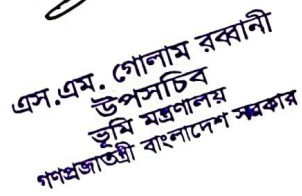 এস.এম. গোলাম রব্বানী
উপসচিব
ভূমি মন্ত্রণালয়
গণপ্রজাতন্ত্রী বাংলাদেশ সরকার